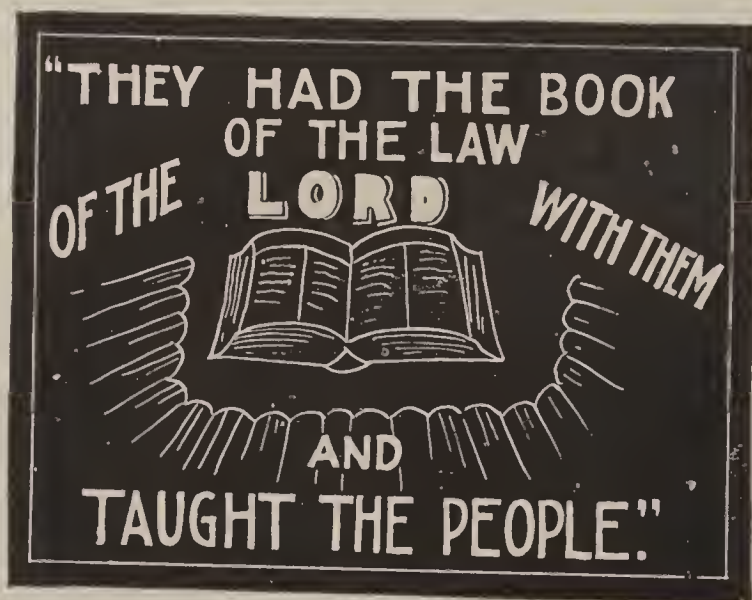 “THEY HAD THE BOOK
OF THE LAW
OF THE LORD WITH THEM
AND
TAUGHT THE PEOPLE.”